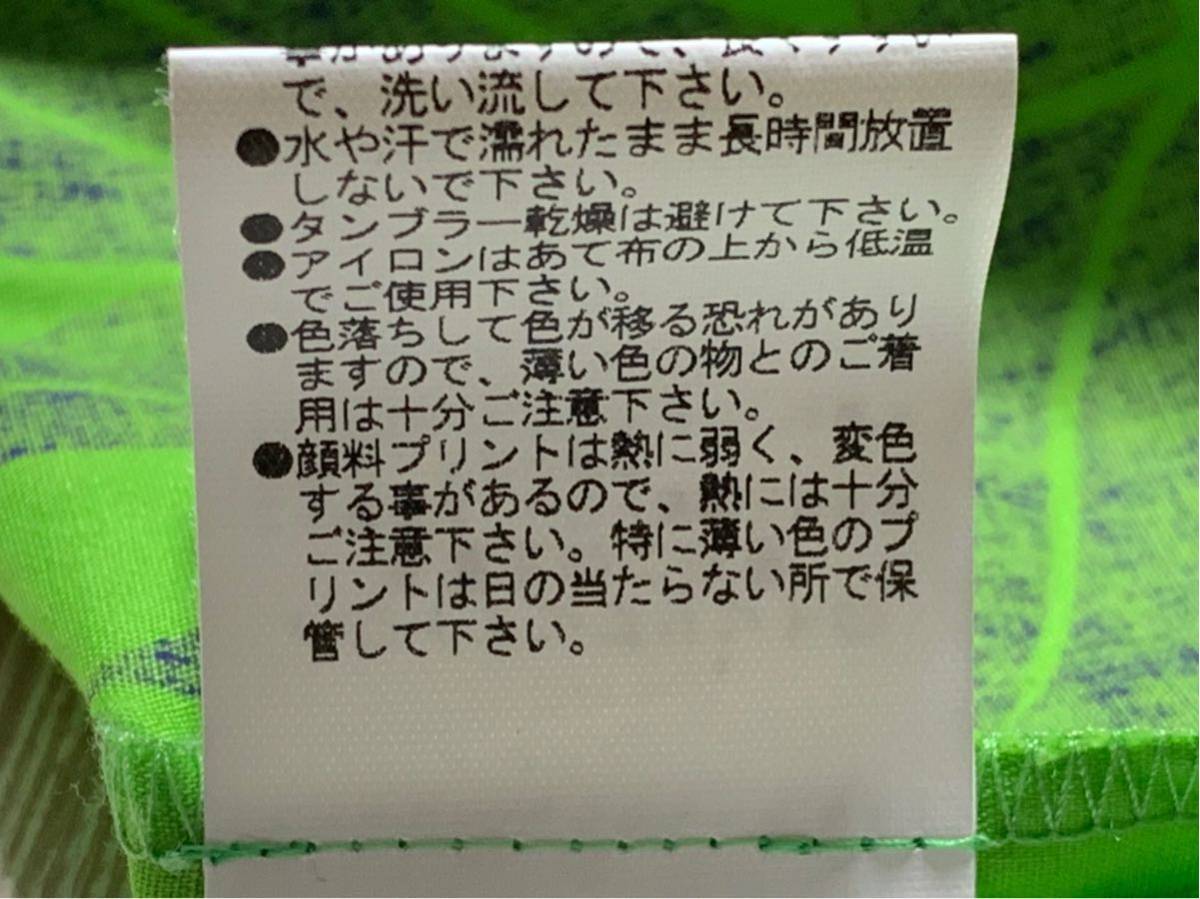 で、洗い流して下さい。
●水や汗で濡れたまま長時間放置
しないで下さい。
●タンブラー乾燥は避けて下さい。
●アイロンはあて布の上から低温
でご使用下さい。
●色落ちして色が移る恐れがあり
ますので、薄い色の物とのご着
用は十分ご注意下さい。
●顔料プリントは熱に弱く、変色
する事があるので、熱には十分
ご注意下さい。特に薄い色のプ
リントは日の当たらない所で保
管して下さい。